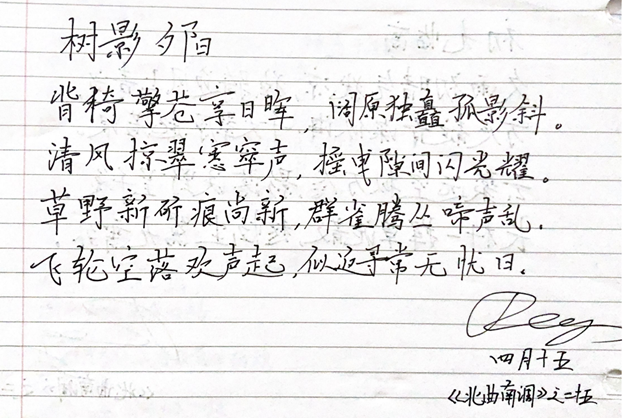 树影夕阳
背椅擎苍享日晖,阔原独矗孤影斜。
清风掠翠窸窣声,摇曳隙间闪光耀。
草野新斫痕尚新,群雀腾丛啼声乱.
飞轮空落欢声起,似寻常无忧日.
四月十五
《北曲南调》之二十五